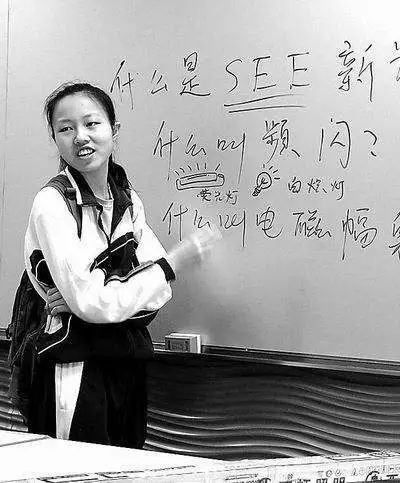 什么是 SEE 新
什么叫频闪?
荧光灯 白炽灯
什么叫电磁幅